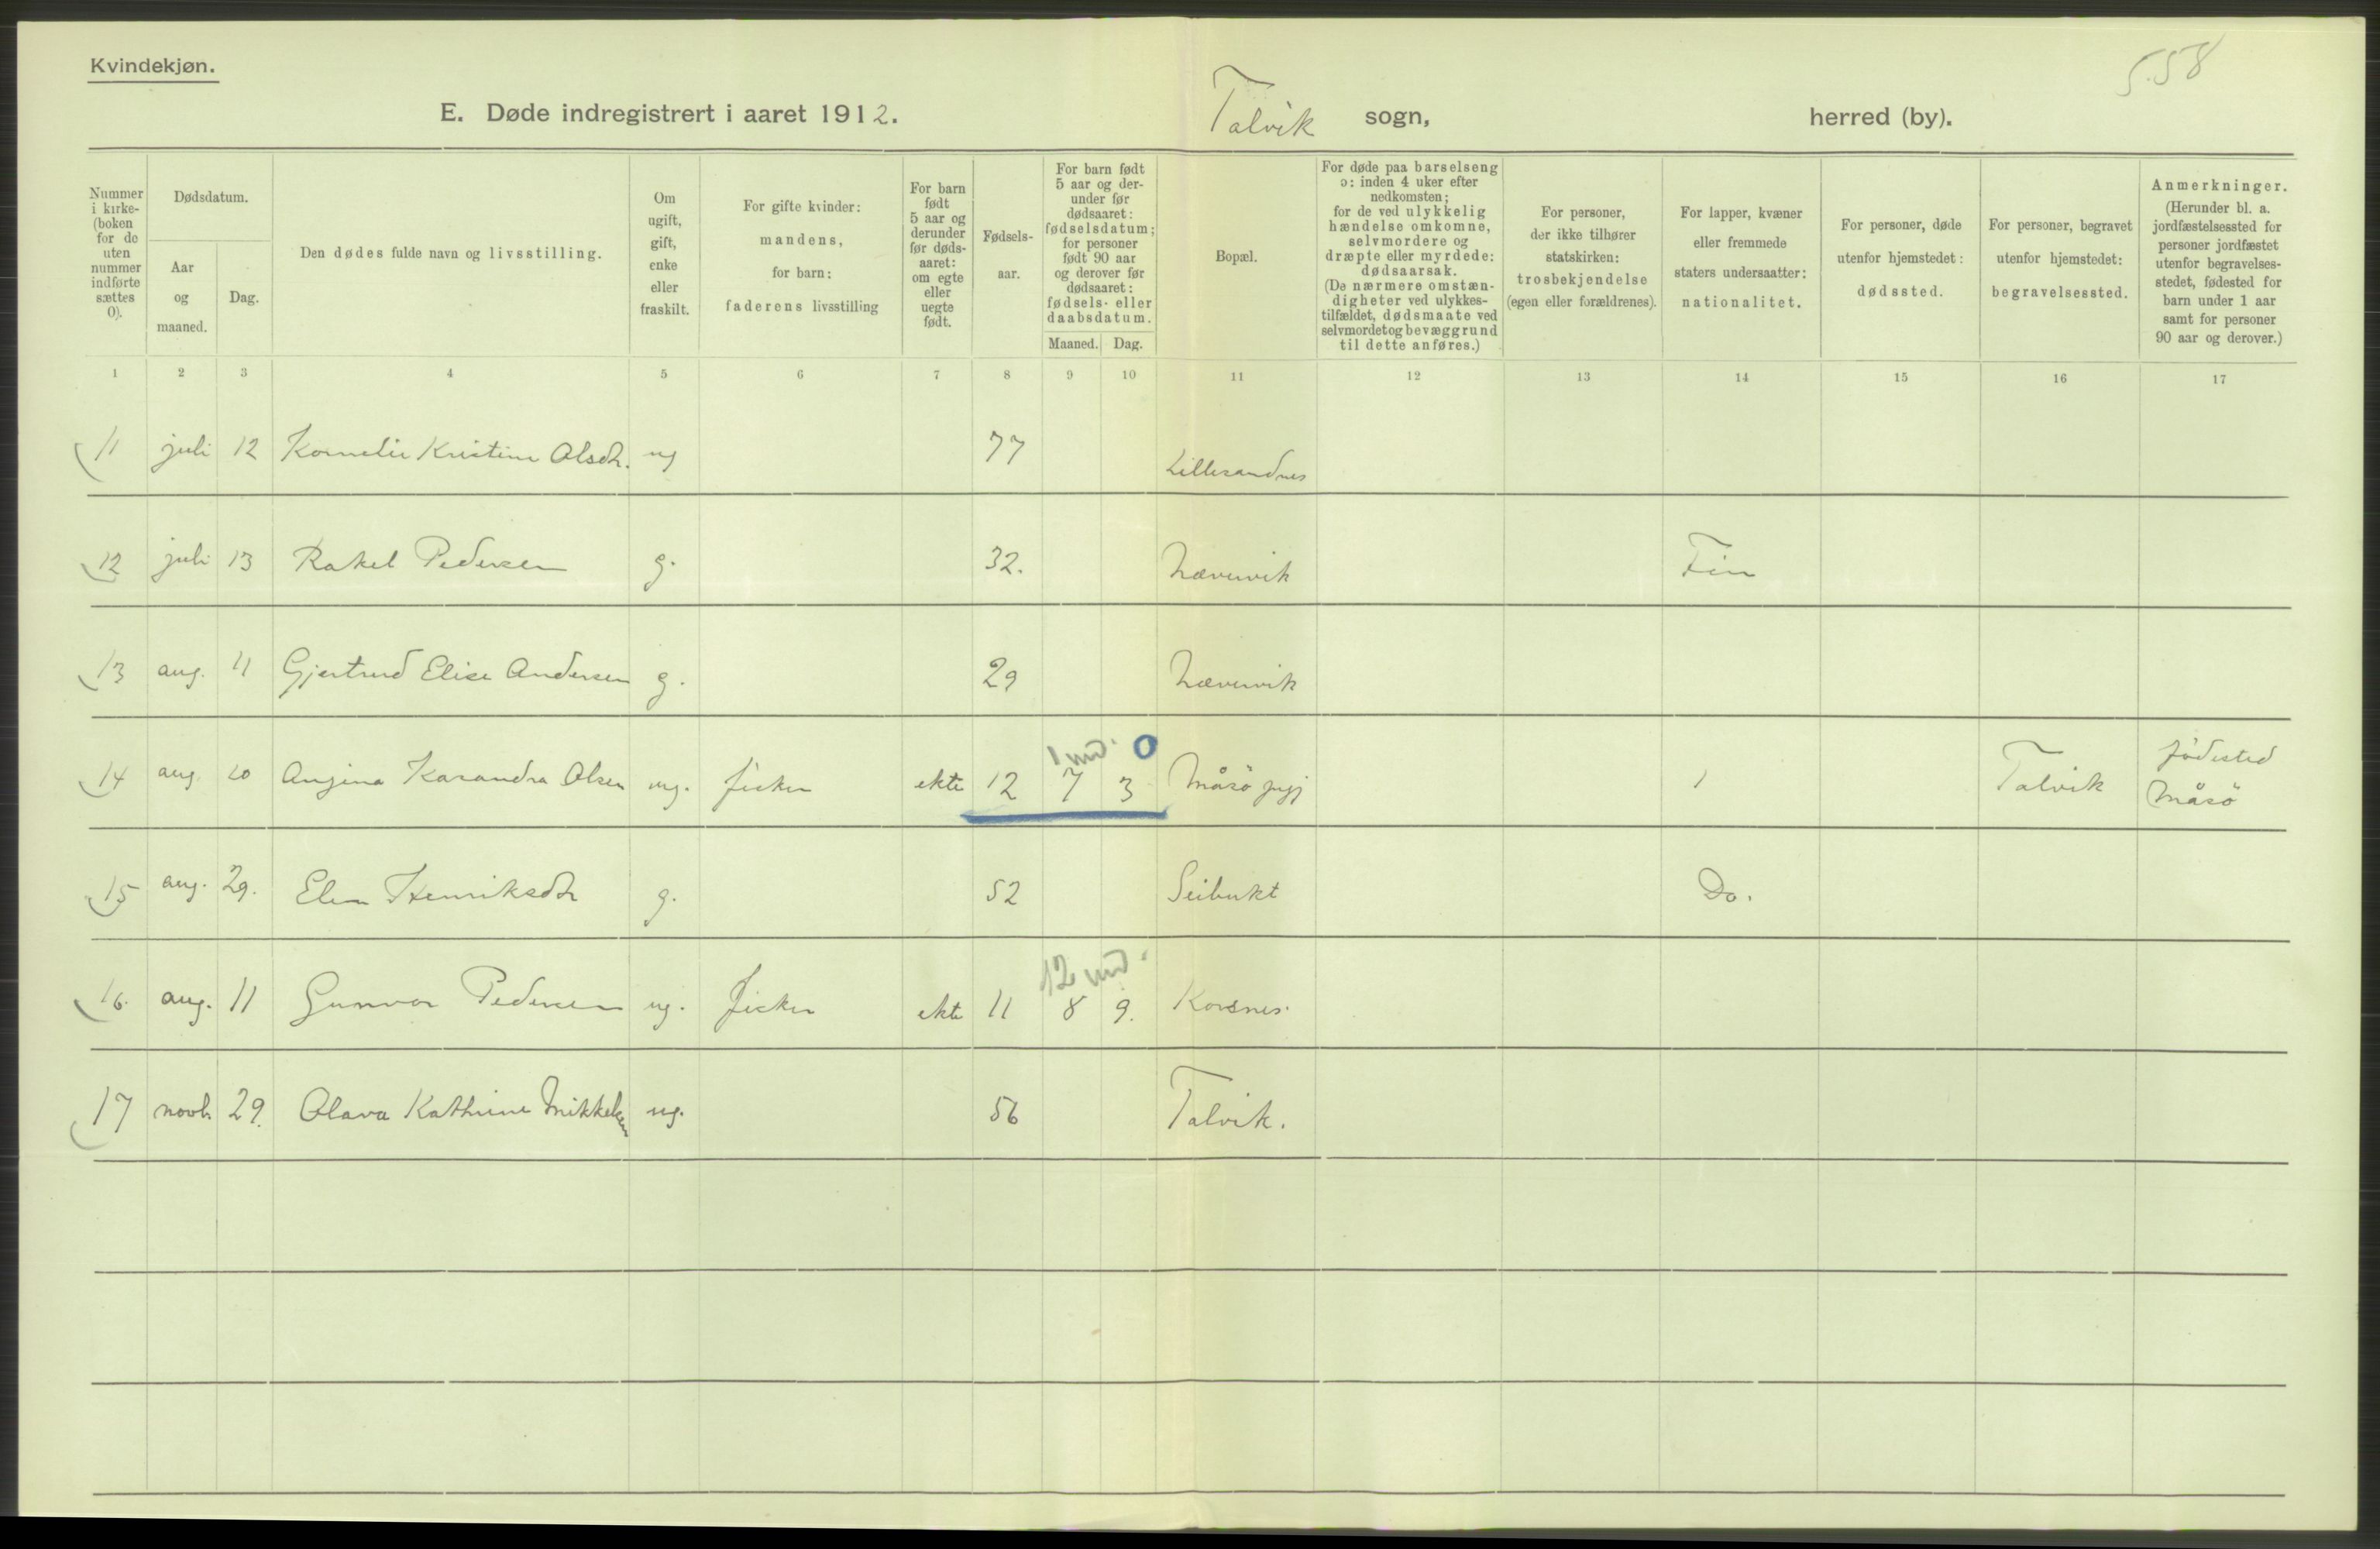 Kvindekjøn.
5.58
E. Døde indregistrert i aaret 1912.
Talvik sogn, herred (by).
Nummer i kirke-(boken for de uten nummer indførte sættes 0).
Dødsdatum.
Aar og maaned.
Dag.
Den dødes fulde navn og livsstilling.
Om ugift, gift, enke eller fraskilt.
For gifte kvinder: mandens, for barn: faderens livsstilling
For barn født 5 aar og derunder før døds-aaret: om egte eller uegte født.
Fødsels-aar.
For barn født 5 aar og der-under før dødsaaret: fødselsdatum; for personer født 90 aar og derover før dødsaaret: fødsels- eller daabsdatum.
Maaned. Dag.
Bopæl.
For døde paa barselseng ɔ: inden 4 uker efter nedkomsten; for de ved ulykkelig hændelse omkomne, selvmordere og dræpte eller myrdede: dødsaarsak. (De nærmere omstæn-digheter ved ulykkes-tilfældet, dødsmaate ved selvmordet og bevæggrund til dette anføres.)
For personer, der ikke tilhører statskirken: trosbekjendelse (egen eller forældrenes).
For lapper, kvæner eller fremmede staters undersaatter: nationalitet.
For personer, døde utenfor hjemstedet: dødssted.
For personer, begravet utenfor hjemstedet: begravelsessted.
Anmerkninger. (Herunder bl. a. jordfæstelsessted for personer jordfæstet utenfor begravelses-stedet, fødested for barn under 1 aar samt for personer 90 aar og derover.)
1 2 3 4 5 6 7 8 9 10 11 12 13 14 15 16 17
11 juli 12 Kornelie Kristine Olsdt. ug 77 Lillesandnes
12 juli 13 Rakel Pedersen g. 32. Lævervik Fin
13 aug. 11 Gjertrud Elise Andersen g. 29 Lævervik
1 md. 0
14 aug. 20 Anjina Kasandra Olsen ug. fisker ekte 12 7 3 Måsö pgj 1 Talvik födested Måsö
15 aug. 29. Elen Henriksdt g. 52 Seibukt Do.
12 md.
16. aug. 11 Gunvor Pedersen ug. fisker ekte 11 8 9. Korsnes.
17 novb. 29. Olava Kathrine Mikkelsen ug. 56 Talvik.